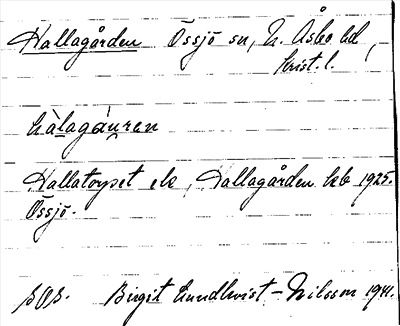 Hallagården Össjö sn, N. Åsbo hd,
Krist. l.
hàlagàu̯ren
Hallatorpet ek, Hallagården hb 1925.
Össjö.
SOS. Birgit Lundkvist-Nilsson 1941.